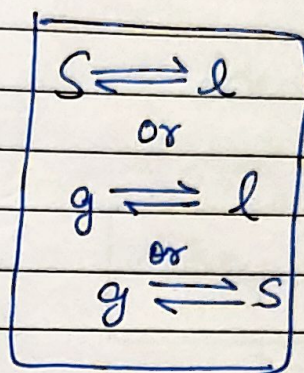 S ⇌ l
or
g ⇌ l
or
g ⇌ S